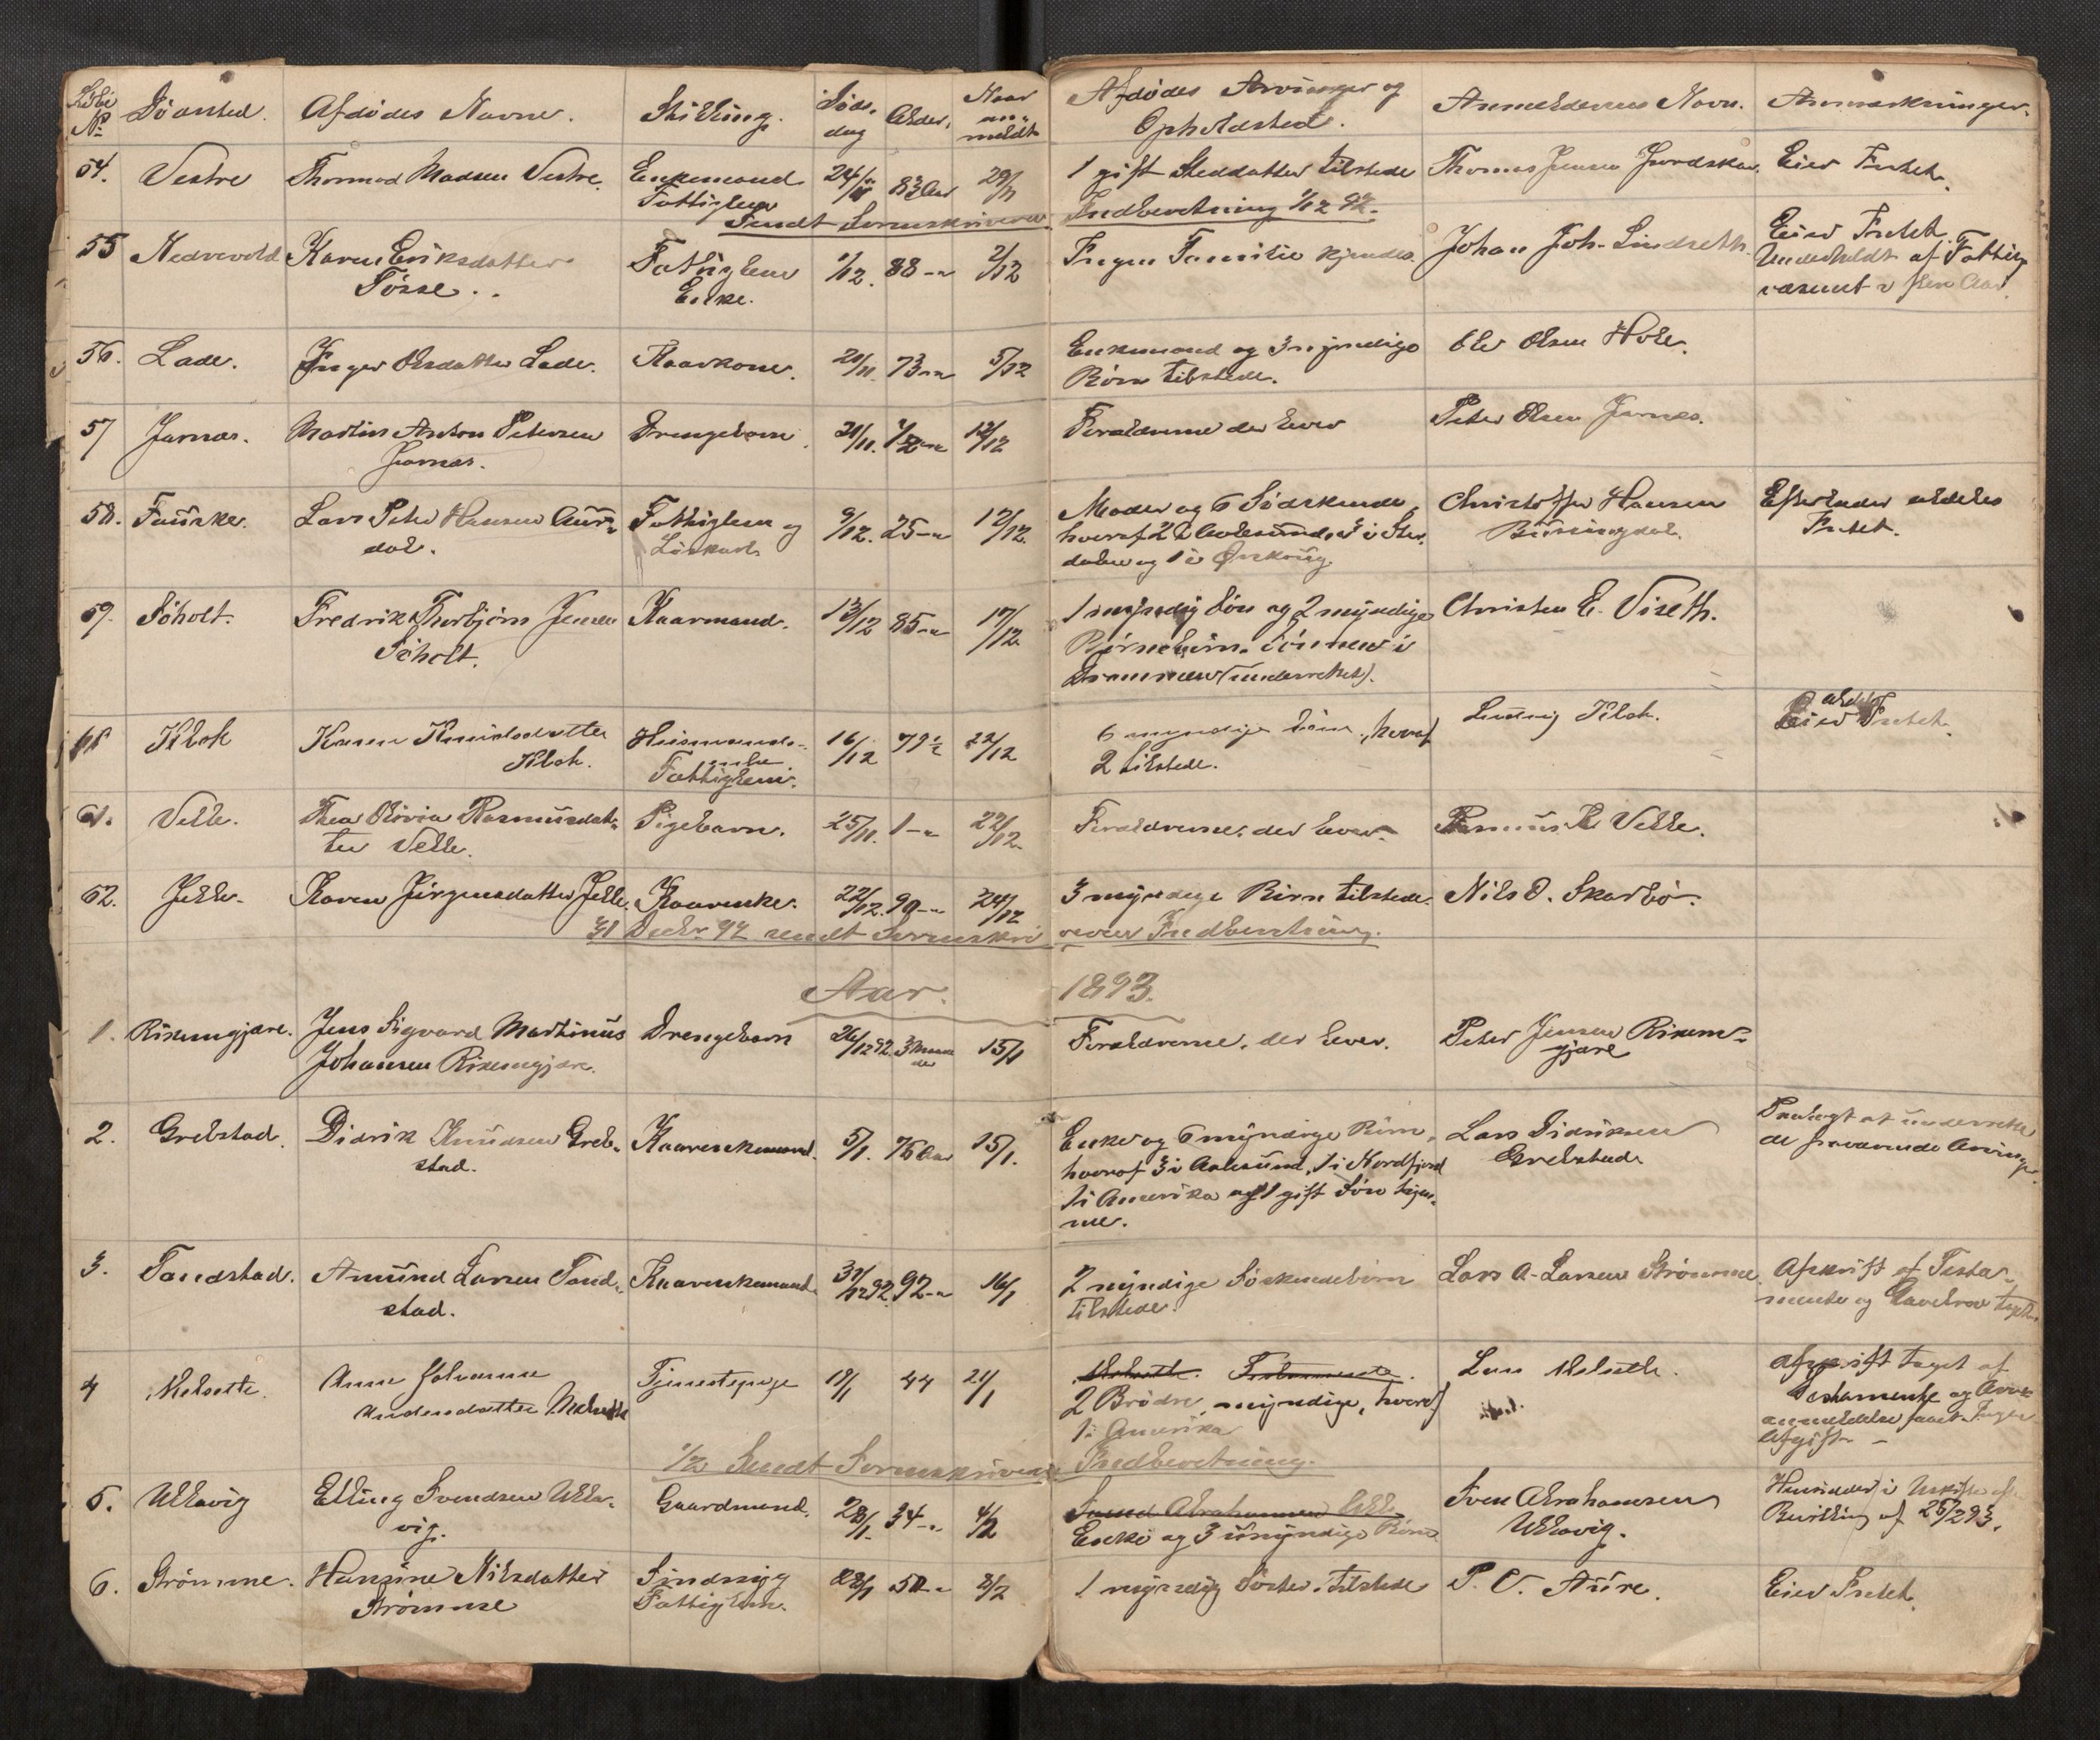 Löbe Nº Döanted. Afdödes Navne. Stilling. Döds-dag Alder. Naar an-meldt Afdödes Arvinger og Opholdsted. Anmelderens Navn. Anmærkninger.
54. Vestre Thormod Madsen Vestre. Enkemand Fattiglem 24/11 83 Aar 29/11 1 gift Steddatter tilstede Thomas Jensen Eier Intet.
Sendt Sorenskriveren Indberetning 1/12 92.
55 Nedrevold Karen Eriksdatter Tösse. Fattiglem Enke. 1/12. 88 -"- 2/12 Ingen Familie kjendes. Johan Joh. Lindseth. Eier Intet. Underholdt af Fattigvæsenet i flere Aar.
56. Lade. Inger Olsdatter Lade. Kaarkone. 20/11. 73 -"- 5/12 Enkemand og 3 myndige Börn tilstede. Ole Olsen Hole.
57 Jarnæs. Martin Anton Petersen Jarnæs. Drengebarn 21/11. 1/2 -"- 12/12 Forældrene der lever Peter Olsen Jarnæs.
58. Fauske. Lars Peter Hansen Aurdal. Fattiglem og Löskarl. 9/12. 25 -"- 12/12. Moder og 6 Södskende, hvoraf 2 i Aalesund, 3 i Stordalen og 1 i Ørskoug Christoffer Hansen Eftelader aldeles Intet.
59. Söholt. Fredrik Thorbjörn Jensen Söholt. Kaarmand. 13/12 85 -"- 17/12. 1 myndig Sön og 2 myndige Börnebörn. Sönnen i Drammen (underrettet). Christen E. Viseth.
Klok Karen Knudsdatter Klok. Huusmands-enke Fattiglem. 16/12 79 1/2 22/12 6 myndige Börn, hvoraf 2 tilstede. Ludvig Klok. Eier aldeles Intet.
61. Velle. Thea Olivia Rasmusdatter Velle. Pigebarn. 25/11. 1 -"- 22/12. Forældrene, der lever. Rasmus P. Velle.
62. Jelle. Karen Jörgensdatter Jelle. Kaarenke. 22/12. 90 -"- 24/12 3 myndige Börn tilstede. Nils O. Skarbö.
31 Decbr. 92 sendt Sorenskriveren Indberetning.
Aar. 1893.
1. Risemgjære. Jens Sigvard Martinus Johansen Risemgjære. Drengebarn 26/12 92. 3 Maaneder 15/1 Forældrene, der lever. Peter Jensen Risem-gjære
2. Grebstad. Didrik Knudsen Greb-stad. Kaarenkemand. 5/1. 76 Aar 15/1. Enke og 6 myndige Börn, hvoraf 3 i Aalesund, 1 i Nordfjord 1 i Amerika og 1 gift Sön hjem-me. Lars Didriksen Grebstad. Paalagt at underrette de fraværende Arvinger.
3. Tandstad. Amund Larsen Tand-stad. Kaarenkemand. 31/12 92. 92 -"- 16/1 2 myndige Söskendebörn tilstede. Lars A. Larsen Strömme. Afskrift af Testamente og Gavebrev taget.
4 Melseth. Anne Johanne Andersdatter Melseth Tjenestepige 19/1 44 21/1 Melseth. Testamente. 2 Brödre, myndige, hvoraf 1 i Amerika Lars Melseth. Afskrift taget af Testamente og anmeldelse Ingen Afgift -
1/2 Sendt Sorenskriveren Indberetning.
5. Ullavig Elling Svendsen Ulla-vig. Gaardmand. 28/1. 34 -"- 4/2 Svend Abrahamsen Ulla Enke og 3 umyndige Börn. Sven Abrahamsen Ullavig. Hensidder i Uskifte efter Bevilling af 25/2 93.
6. Strömme. Hansine Nilsdatter Strömme Sindssyg Fattiglem. 28/1 50 -"- 8/2 1 myndig Söster, tilstede P. V. Aure. Eier Intet.